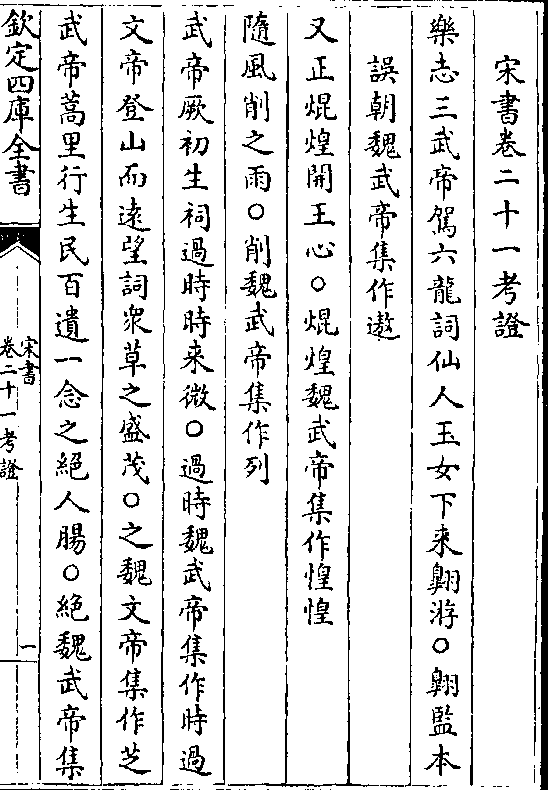 宋書卷二十一考證
樂志三武帝駕六龍詞仙人玉女下来翺游○翺監本
誤朝魏武帝集作遨
又正焜煌開王心○焜煌魏武帝集作惶惶
隨風削之雨○削魏武帝集作列
武帝厥初生祠過時時来微○過時魏武帝集作時過
文帝登山而逺望詞衆草之盛茂○之魏文帝集作芝
武帝蒿里行生民百遺一念之絕人腸○絕魏武帝集
欽定四庫全書
宋書
卷二十一考證
一